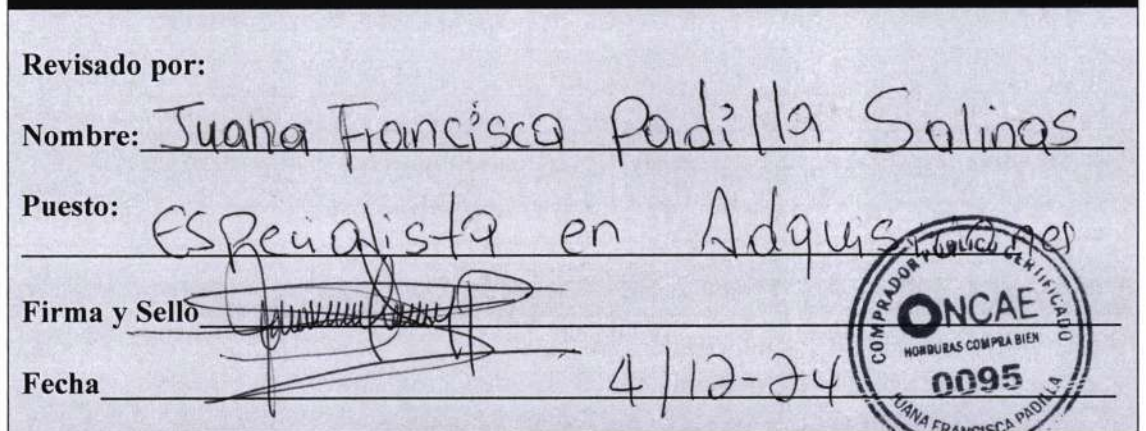 Revisado por:
Nombre: Juana Francisca Padilla Salinas
Puesto: Especialista en Adquisiciones
Firma y Sello
Fecha 4/12-24
COMPRADOR PUBLICO CERTIFICADO
ONCAE
HONDURAS COMPRA BIEN
0095
JUANA FRANCISCA PADILLA